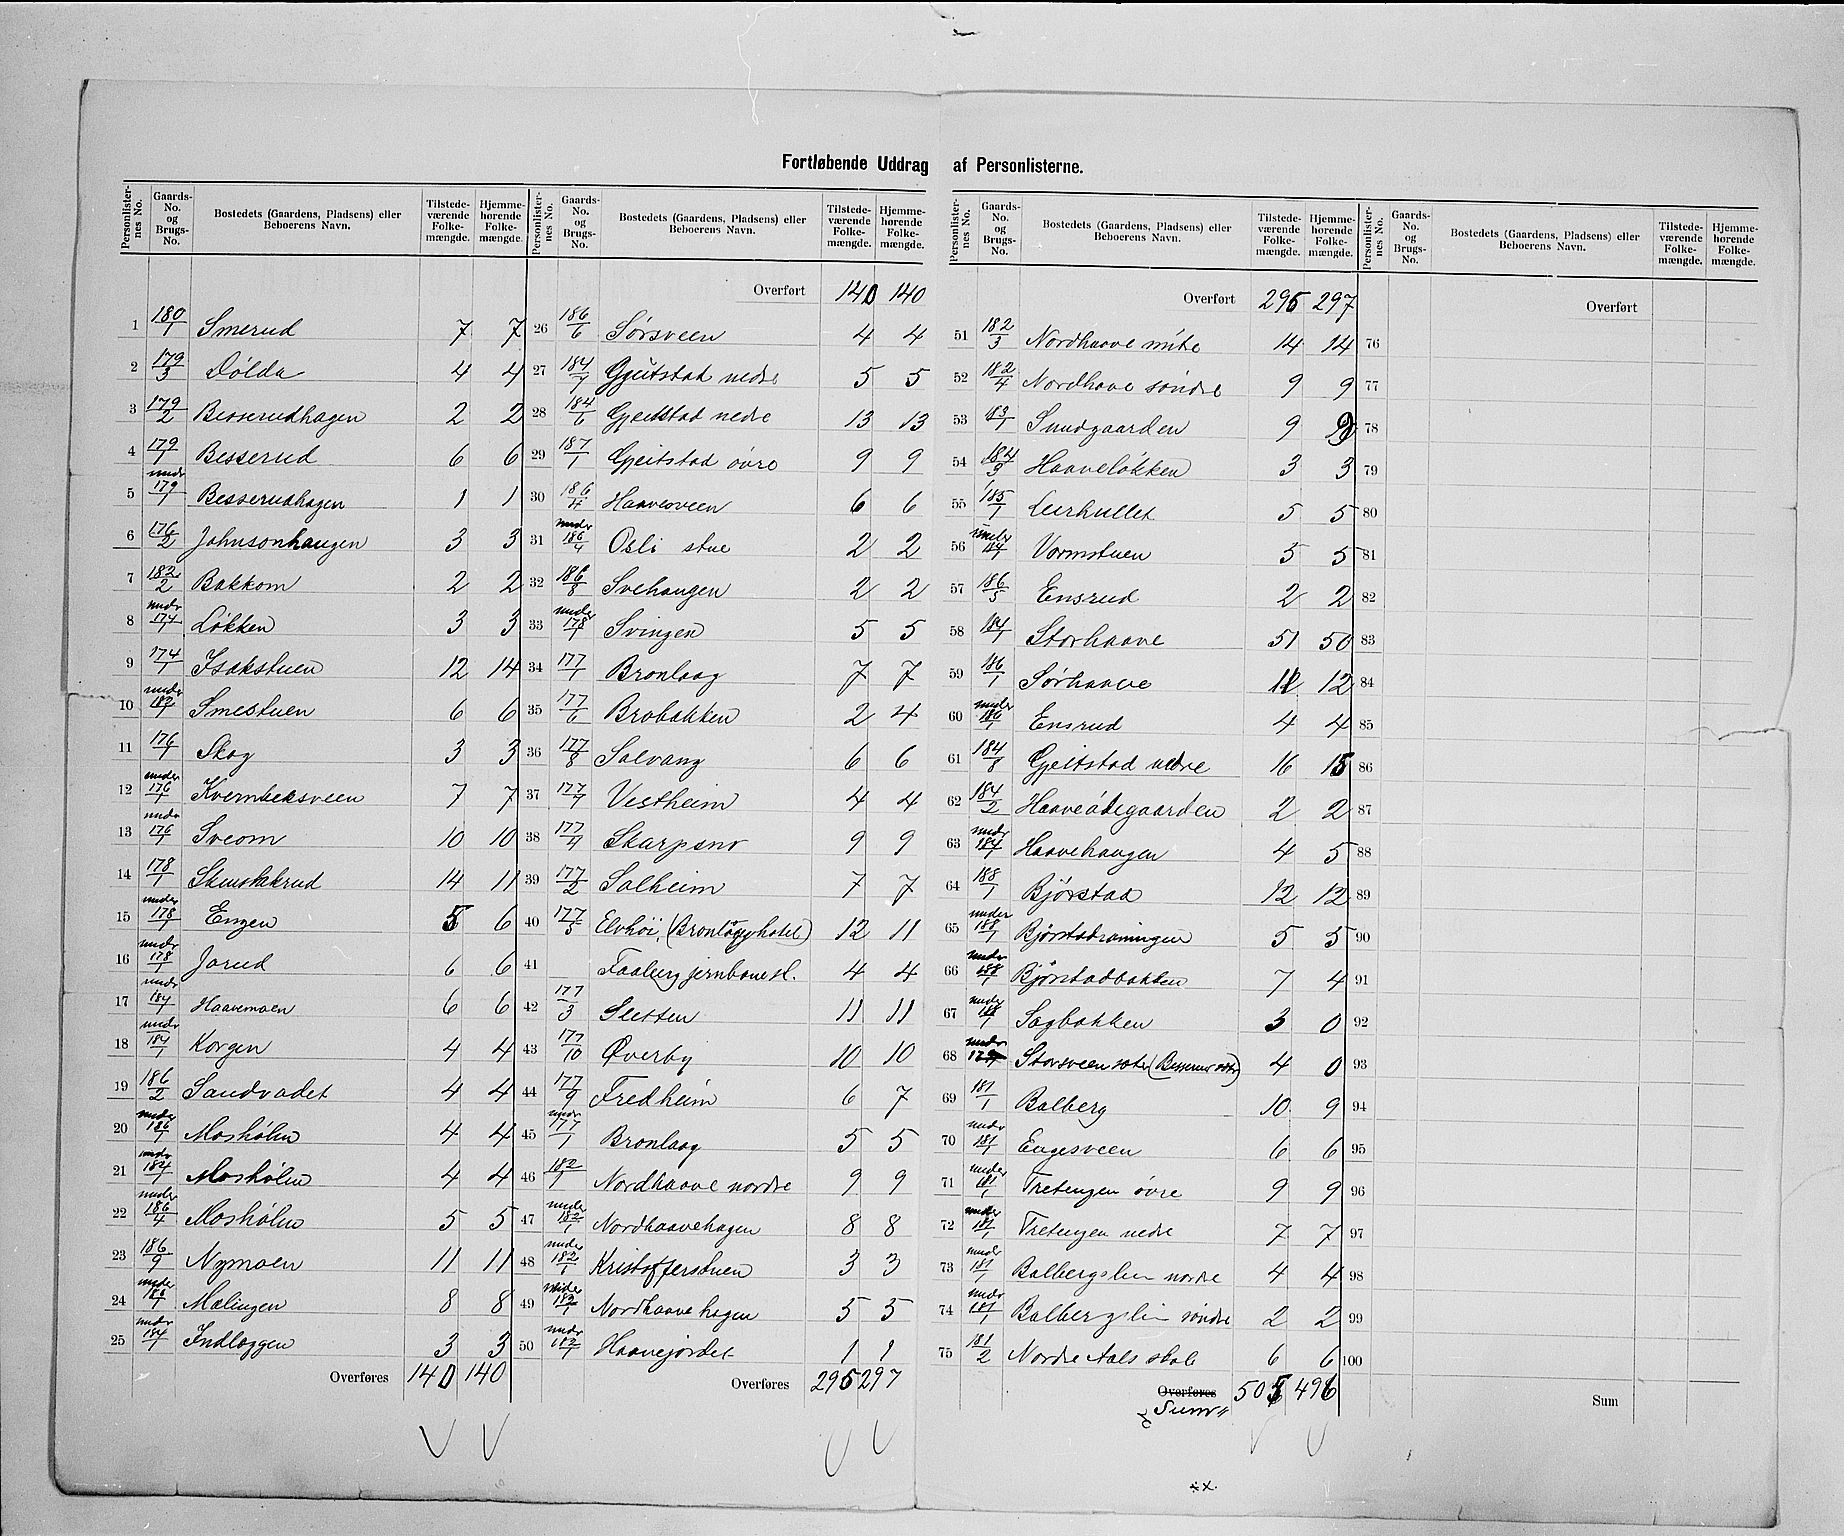 Fortløbende Uddrag af Personlisterne.
Personlister-nes No. | Gaards-No. og Brugs-No. | Bostedets (Gaardens, Pladsens) eller Beboerens Navn. | Tilstede-værende Folke-mængde. | Hjemme-hørende Folke-mængde.
1 180/1 Smerud 7 7
2 179/3 Dølda 4 4
3 179/2 Besserudhagen 2 2
4 179/1 Besserud 6 6
5 undr 179/1 Besserudhagen 1 1
6 176/2 Johnsonhaugen 3 3
7 182/2 Bakkom 2 2
8 undr 174/1 Løkken 3 3
9 174/1 Isakstuen 12 14
10 undr 182/1 Smestuen 6 6
11 176/1 Skog 3 3
12 under 176/1 Kvernbeksveen 7 7
13 undr 176/1 Sveom 10 10
14 178/1 14 11
15 under 178/1 Engen 5 6
16 undr 178/1 Jorud 6 6
17 undr 184/1 Haavemoen 6 6
18 undr 184/1 Korgen 4 4
19 186/2 Sandvadet 4 4
20 under 186/1 Moshølen 4 4
21 undr 184/1 Moshølen 4 4
22 under 186/4 Moshølen 5 5
23 186/9 Nymoen 11 11
24 under Mælingen 8 8
25 undr 184/1 Indlæggen 3 3
Overføres 140 140
Overført 140 140
26 186/6 Sørsveen 4 4
27 184/7 Gjeitstad nedre 5 5
28 184/6 Gjeitstad nedre 13 13
29 187/1 Gjeitstad øvre 9 9
30 186/4 Haavesveen 6 6
31 under 186/4 Osli stue 2 2
32 186/8 Svehaugen 2 2
33 under 178/1 Svingen 5 5
34 177/1 Bronlaag 7 7
35 177/6 Brobakken 2 4
36 177/8 Solvang 6 6
37 177/7 Vestheim 4 4
38 177/4 Skarpsno 9 9
39 177/2 Solheim 7 7
40 177/5 Elvhöi, (Bronlaaghotel) 12 11
41 Faaberg jernbanest. 4 4
42 177/3 Sletten 11 11
43 177/10 Øverby 10 10
44 177/9 Fredheim 6 7
45 undr 177/1 Bronlaag 5 5
46 182/1 Nordhaave nordre 9 9
47 under 182/1 Nordhaavehagen 8 8
48 under 182/1 Kristofferstuen 3 3
49 under 182/1 Nordhaavehagen 5 5
50 undr 182/1 Haavejordet 1 1
Overføres 295 297
Overført 295 297
51 182/3 Nordhaave mite 14 14
52 182/4 Nordhave søndre 9 9
53 183/1 Sundgaarden 9 9
54 184/9 Haaveløkken 3 3
55 185/1 Leirhullet 5 5
56 under Vormstuen 5 5
57 186/5 Ensrud 2 2
58 184/1 Storhaave 51 50
59 186/1 Sørhaave 12 12
60 under 186/1 Ensrud 4 4
61 184/8 Gjeitstad nedre 16 15
62 184/2 Haaveødegaarden 2 2
63 undr 184/1 Haavehaugen 4 5
64 188/1 Bjørstad 12 12
65 under 188/1 Bjørstadroningen 5 5
66 under 188/1 Bjørstadbakken 7 4
67 under 188/1 Sagbakken 3 0
68 undr 179/1 Storsveen sæter (Besserud sæter) 4 0
69 181/1 Balberg 10 9
70 undr 181/1 Engesveen 6 6
71 under 181/1 Tretengen øvre 9 9
72 under 181/1 Tretengen nedre 7 7
73 undr 181/1 Balbergslien nordre 4 4
74 undr 181/1 Balbergslien søndre 2 2
75 181/2 Nordre Aals skole 6 6
Overføres Sum 505 496
Personlister-nes No. | Gaards-No. og Brugs-No. | Bostedets (Gaardens, Pladsens) eller Beboerens Navn. | Tilstede-værende Folke-mængde. | Hjemme-hørende Folke-mængde.
Overført
76
77
78
79
80
81
82
83
84
85
86
87
88
89
90
91
92
93
94
95
96
97
98
99
100
Sum